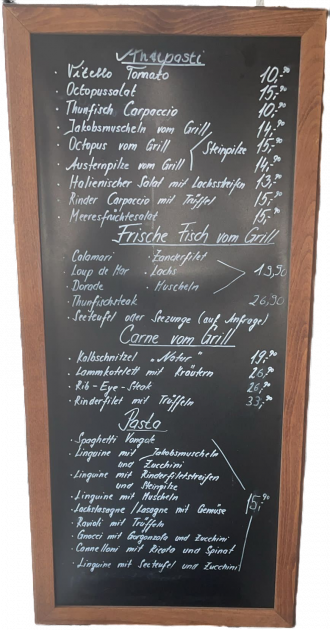 Antipasti
· Vitello Tomato 10,90
· Octopussalat 15,90
· Thunfisch Carpaccio 10,90
· Jakobsmuscheln vom Grill 14,90
· Octopus vom Grill 15,90
Steinpilze
· Austernpilze vom Grill 14,90
· Italienischer Salat mit Lachsstreifen 13,90
· Rinder Carpaccio mit Trüffel 15,90
· Meeresfrüchtesalat 15,90
Frische Fisch vom Grill
Calamari · Zanderfilet
· Loup de Mar · Lachs 19,90
· Dorade · Muscheln
· Thunfischsteak 26,90
· Seeteufel oder Seezunge (auf Anfrage)
Carne vom Grill
· Kalbschnitzel "Natur" 19,90
· Lammkotelett mit Kräutern 26,90
· Rib-Eye-Steak 26,90
· Rinderfilet mit Trüffeln 33,90
Pasta
· Spaghetti Vongole
· Linguine mit Jakobsmuscheln
und Zucchini
· Linguine mit Rinderfiletstreifen
und Steinpilze
· Linguine mit Muscheln 15,90
· Lachslasagne / Lasagne mit Gemüse
· Ravioli mit Trüffeln
· Gnocci mit Gorgonzola und Zucchini
· Cannelloni mit Ricota und Spinat
· Linguine mit Seeteufel und Zucchini